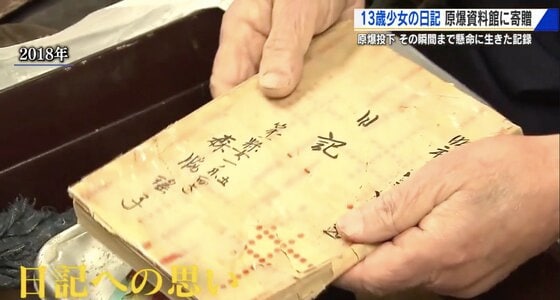 13歳少女の日記 原爆資料館に寄贈
原爆投下 その瞬間まで懸命に生きた記録
2018年
日記
森脇瑤子
日記への思い